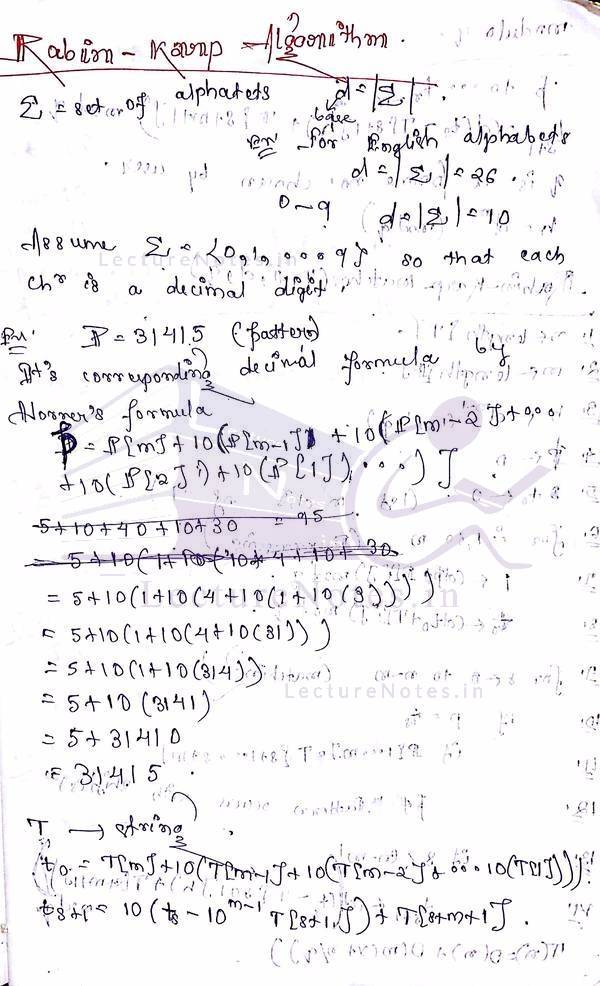 Rabin - Karp - Algorithm.
Σ = set of alphabets d = |Σ|.
base
Ex: for English alphabets
d = |Σ| = 26.
0-9 d = |Σ| = 10
Assume Σ = {0,1,....9} so that each
LectureNotes.in
chr is a decimal digit.
Ex: P = 31415 (pattern)
It's corresponding decimal formula by
Horner's formula
p = P[m] + 10(P[m-1] + 10(P[m-2] + ...
+10(P[2]) + 10(P[1])...) ]
5+10+40+10+30 = 95
= 5+10(1+10(10+4+10+30
= 5+10(1+10(4+10(1+10(3))))
LectureNotes.in
= 5+10(1+10(4+10(31)))
= 5+10(1+10(314))
= 5+10(3141)
LectureNotes.in
= 5+31410
= 31415
T → string
t0 = T[m]+10(T[m-1]+10(T[m-2]+...10(T[1])))
ts+1 = 10(ts - 10^m-1 T[s+1]) + T[s+m+1].